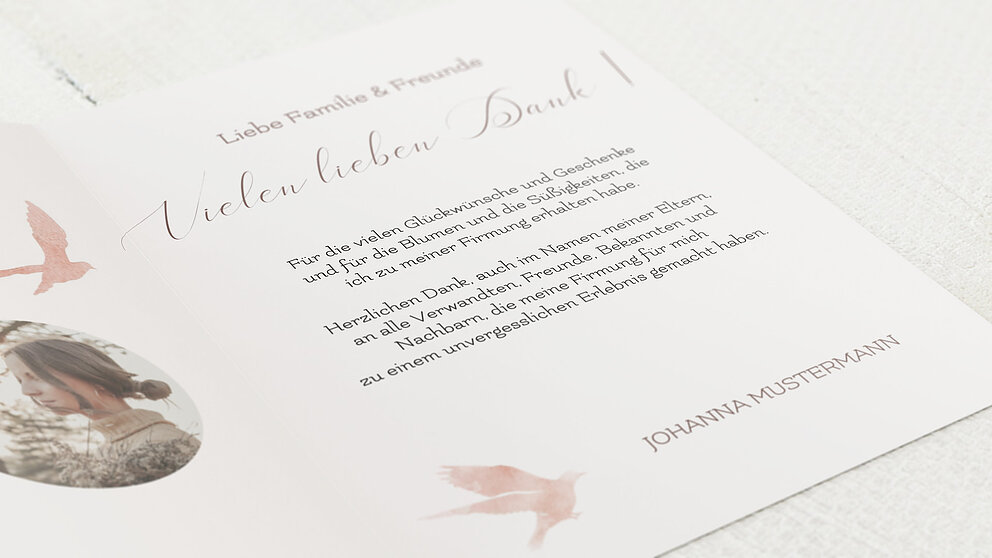 Liebe Familie & Freunde
Vielen lieben Dank
Für die vielen Glückwünsche und Geschenke
und für die Blumen und die Süßigkeiten, die
ich zu meiner Firmung erhalten habe.
Herzlichen Dank, auch im Namen meiner Eltern,
an alle Verwandten, Freunde, Bekannten und
Nachbarn, die meine Firmung für mich
zu einem unvergesslichen Erlebnis gemacht haben.
JOHANNA MUSTERMANN